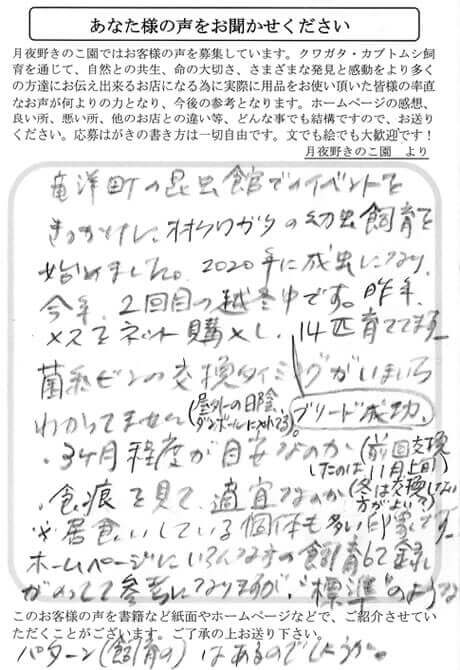 あなた様の声をお聞かせください
月夜野きのこ園ではお客様の声を募集しています。クワガタ・カブトムシ飼
育を通じて、自然との共生、命の大切さ、さまざまな発見と感動をより多く
の方達にお伝え出来るお店になる為に実際に用品をお使い頂いた皆様の率直
なお声が何よりの力となり、今後の参考となります。ホームページの感想、
良い所、悪い所、他のお店との違い等、どんな事でも結構ですので、お送り
ください。応募はがきの書き方は一切自由です。文でも絵でも大歓迎です！
月夜野きのこ園　より
竜洋町の昆虫館でのイベントを
きっかけに、オオクワガタの幼虫飼育を
始めました。2020年に成虫になり、
今年、2回目の越冬中です。昨年、
メスをネット購入し、14匹育ててます。
ブリード成功、
菌糸ビンの交換タイミングがいまいち
わかってません(屋外の日陰、
ダンボールに入れてる)。
・3ヶ月程度が目安なのか(前回交換
したのは11月上旬)
・食痕を見て、適宜なのか(冬は交換しない
方がよい？)
※居食いしている個体も多い印象です。
ホームページにいろんな方の飼育記録
がのってて参考になりますが、"標準"のような
パターン(飼育の)はあるのでしょうか。
このお客様の声を書籍など紙面やホームページなどで、ご紹介させてい
ただくことがございます。ご了承の上お送り下さい。